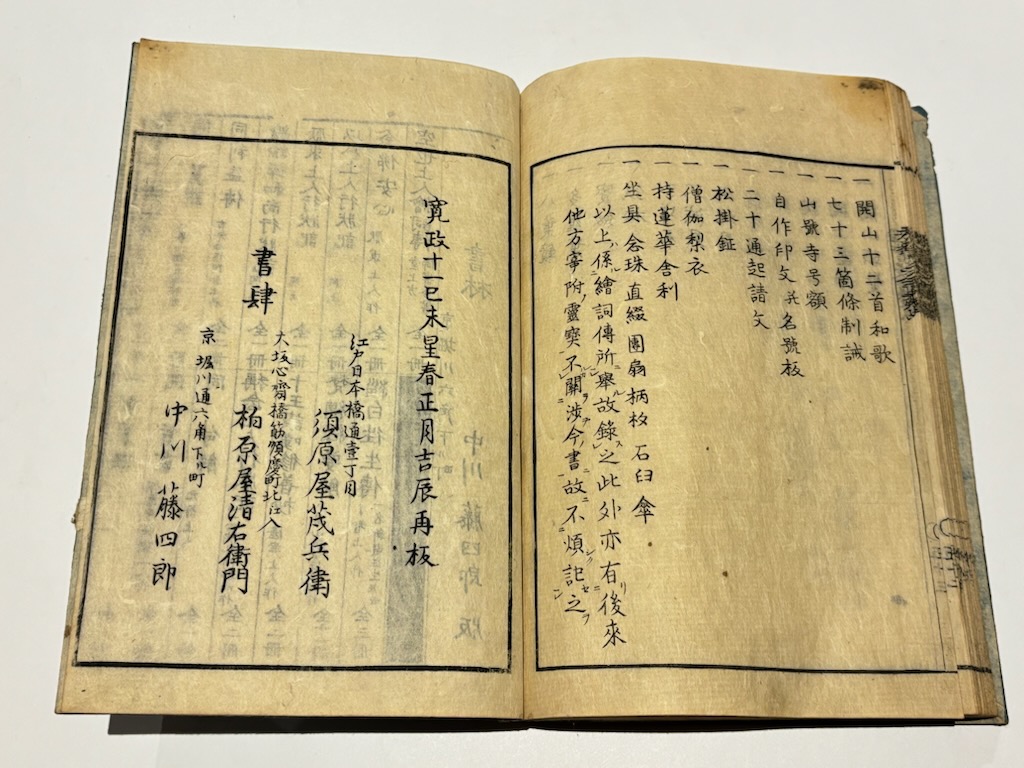 一 開山十二首和歌
一 七十三箇條制誡
一 山號寺号額
一 自作印文并名號板
一 二十通起請文
一 松掛鉦
一 僧伽梨衣
一 持蓮華舎利
一 坐具念珠直綴 團扇 柄杓 石臼 傘
以上係繪詞傳所舉故錄之此外亦有後來
他方寄附靈寶不關渉今書故不煩記之
寛政十一己未星春正月吉辰再板
江戸日本橋通壹丁目
須原屋茂兵衛
大坂心齋橋筋順慶町北江入
柏原屋清右衛門
書肆
京 堀川通六角下ル町
中川藤四郎